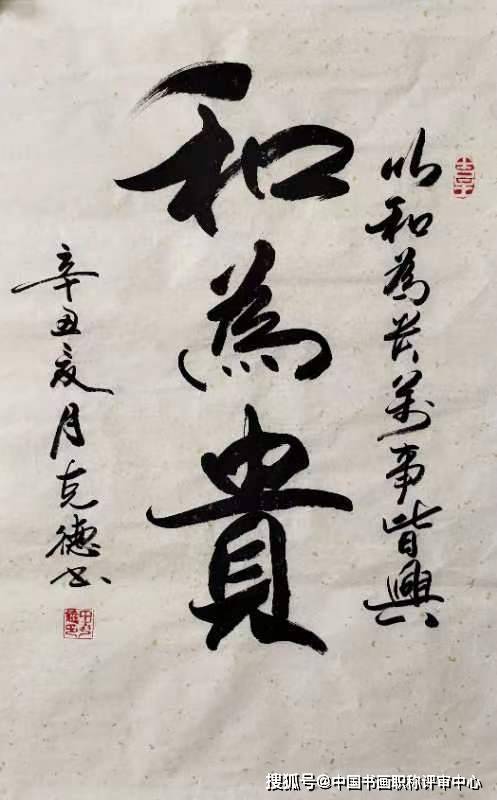 以和為貴萬事皆興
和為貴
辛丑夏月克德書
搜狐号@中国书画职称评审中心